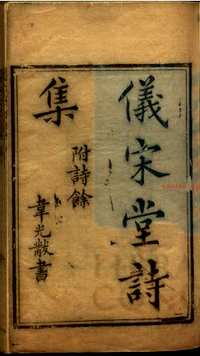 儀宋堂詩
集
附詩餘
韋光黻書